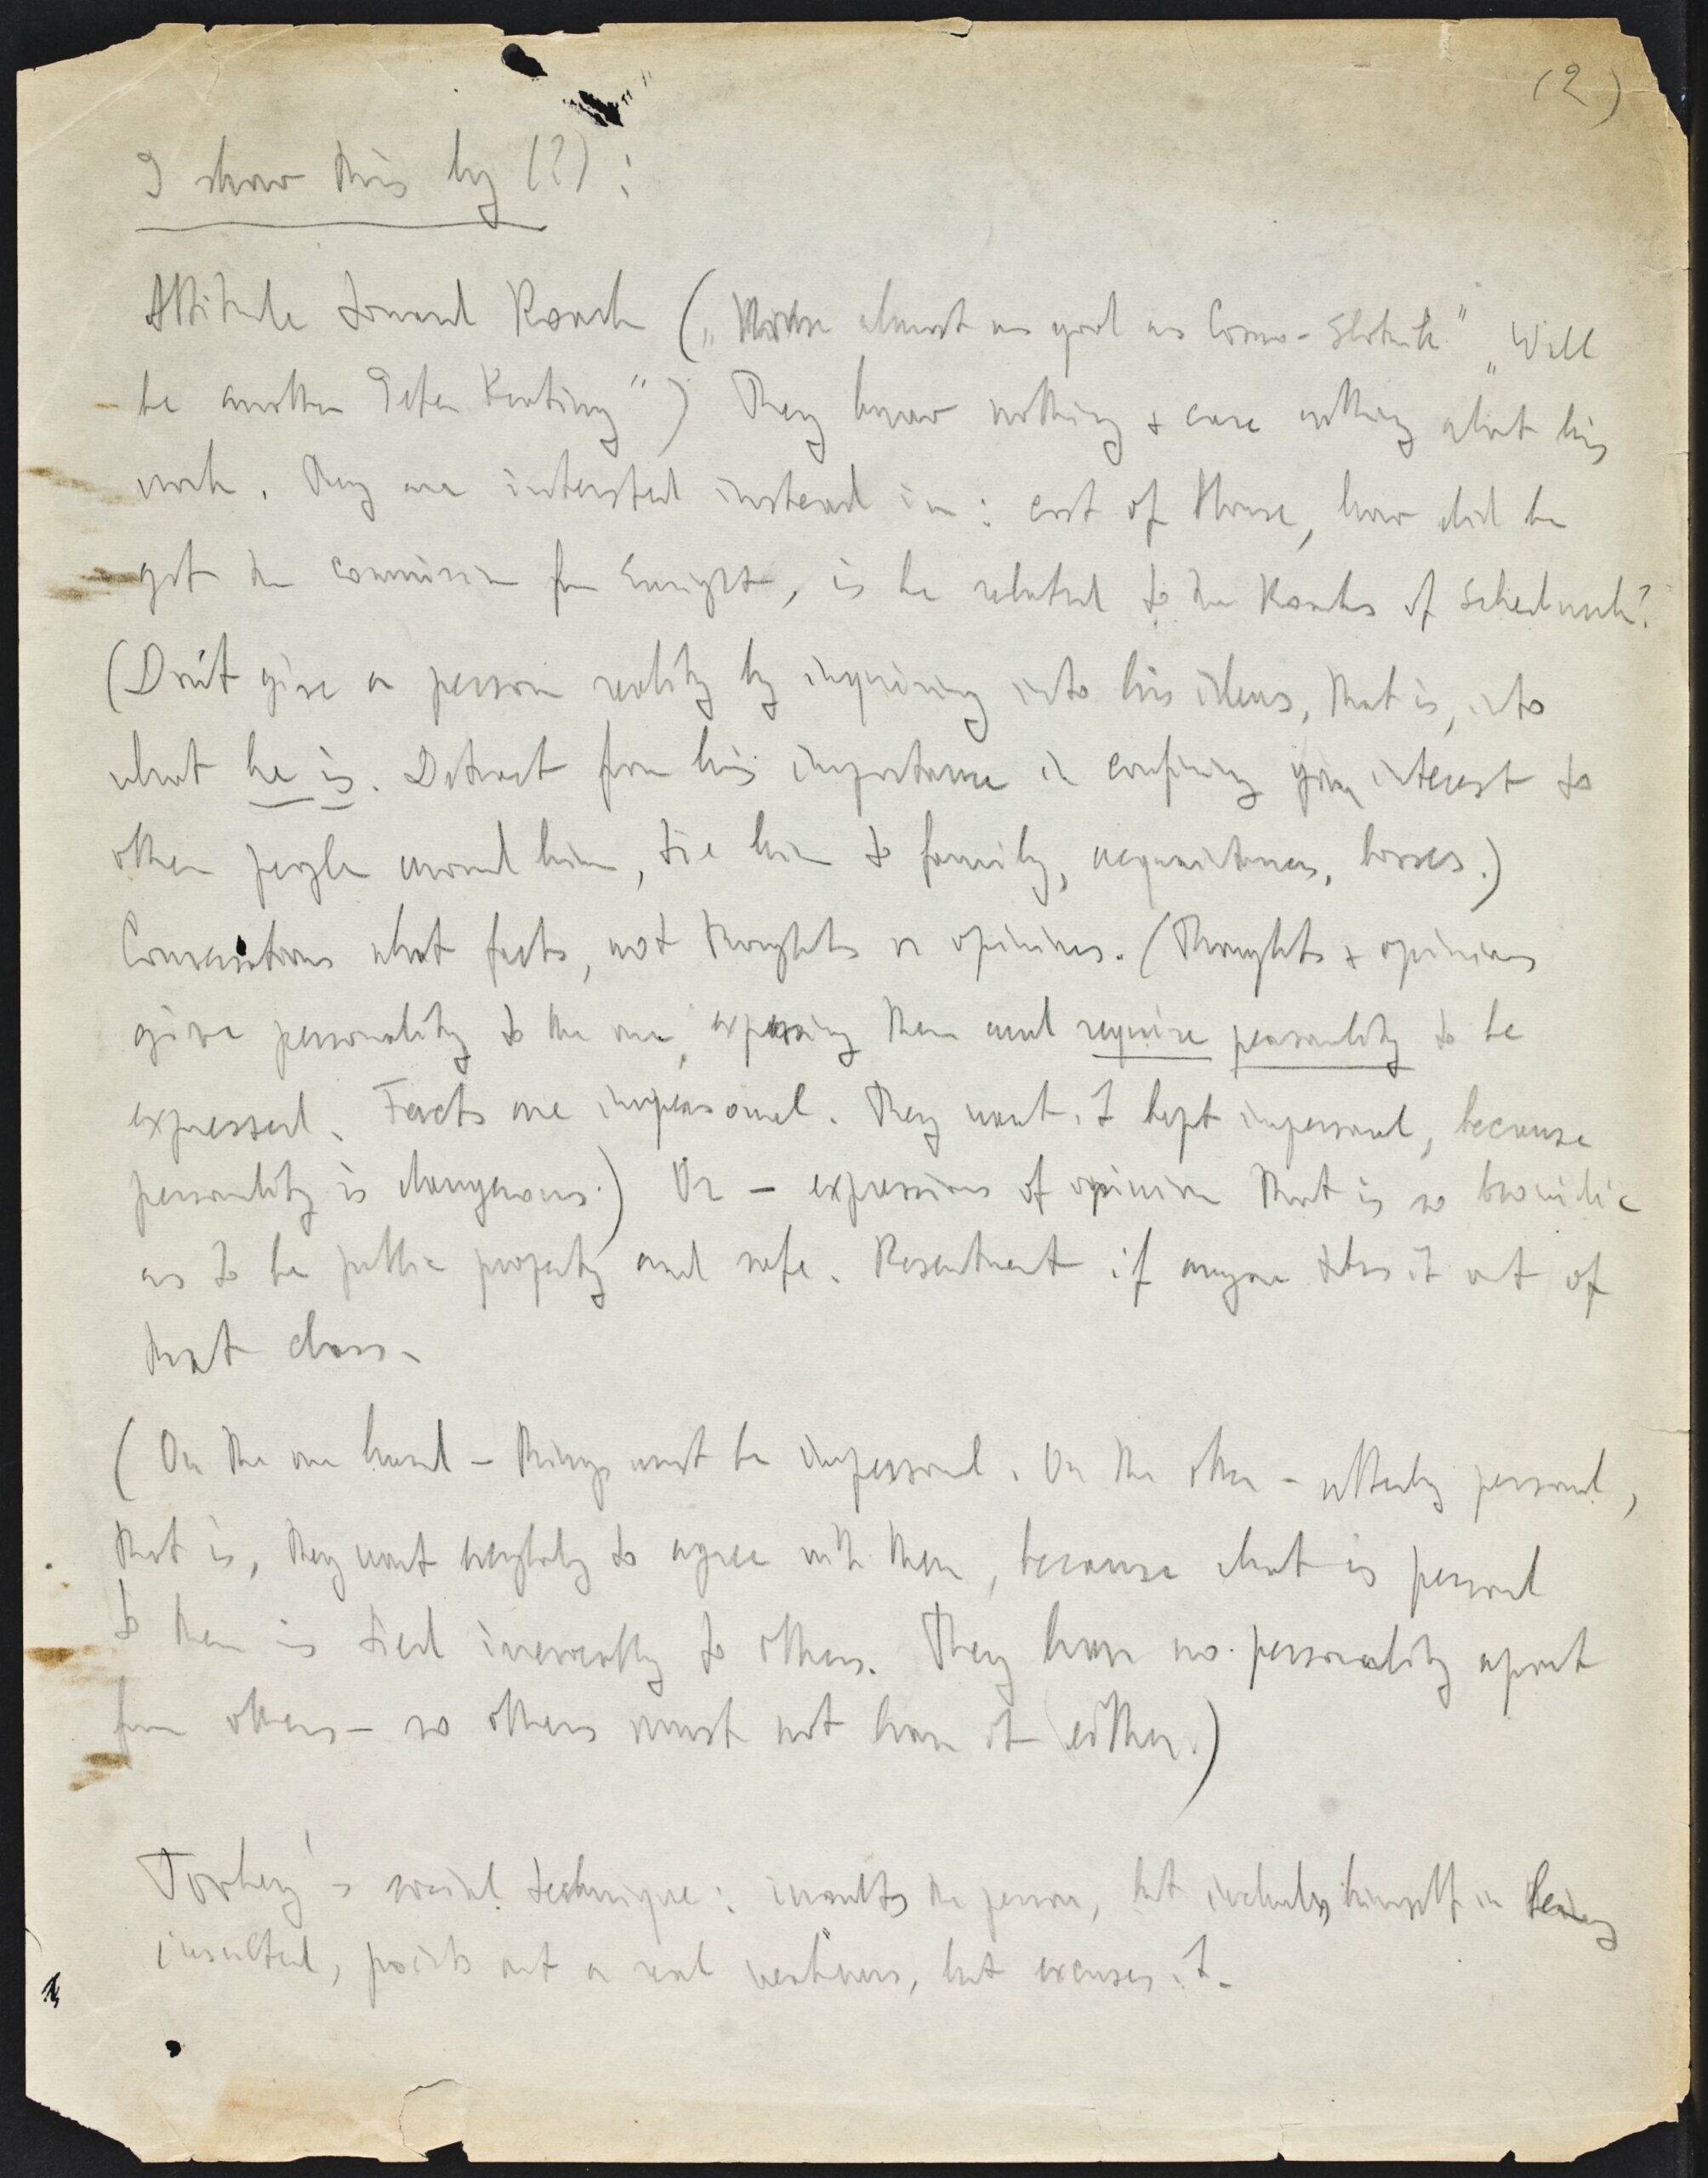 (2)
I show this by (?) :
Attitude toward Roark („House almost as good as Cosmo-Slotnick" „Will
be another Peter Keating") They know nothing & care nothing about his
work. They are interested instead in: cost of House, how did he
get the commission from Enright, is he related to the Roarks of
(Don't give a person reality by inquiring into his ideas, that is, into
what he is. Detract from his importance in confining your interest to
other people around him, tie him to family, acquaintances, bosses.)
Conversations about facts, not thoughts or opinions. (Thoughts & opinions
give personality to the one expressing them and require personality to be
expressed. Facts are impersonal. They want it kept impersonal, because
personality is dangerous.) Or – expressions of opinion that is so bromidic
as to be public property and safe. Resentment if anyone takes it out of
that class.
(On the one hand – things must be impersonal. On the other – utterly personal,
that is, they want everybody to agree with them, because what is personal
to them is tied inevocably to others. They have no personality apart
from others – so others must not have it either.)
Toohey's social technique: insults the person, but includes himself in being
insulted, points out a real weakness, but excuses it.